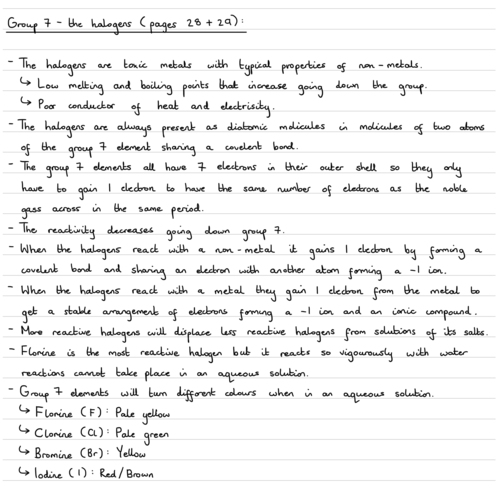 Group 7 - the halogens (pages 28 + 29):
- The halogens are toxic metals with typical properties of non-metals.
↳ Low melting and boiling points that increase going down the group.
↳ Poor conductor of heat and electrisity.
- The halogens are always present as diatomic molicules in molicules of two atoms
of the group 7 element sharing a covelent bond.
- The group 7 elements all have 7 electrons in their outer shell so they only
have to gain 1 electron to have the same number of electrons as the noble
gass across in the same period.
- The reactivity decreases going down group 7.
- When the halogens react with a non-metal it gains 1 electron by forming a
covelent bond and sharing an electron with another atom forming a -1 ion.
- When the halogens react with a metal they gain 1 electron from the metal to
get a stable arrangement of electrons forming a -1 ion and an ionic compound.
- More reactive halogens will displace less reactive halogens from solutions of its salts.
- Florine is the most reactive halogen but it reacts so vigourously with water
reactions cannot take place in an aqueous solution.
- Group 7 elements will turn different colours when in an aqueous solution.
↳ Florine (F): Pale yellow
↳ Clorine (Cl): Pale green
↳ Bromine (Br): Yellow
↳ Iodine (I): Red/Brown